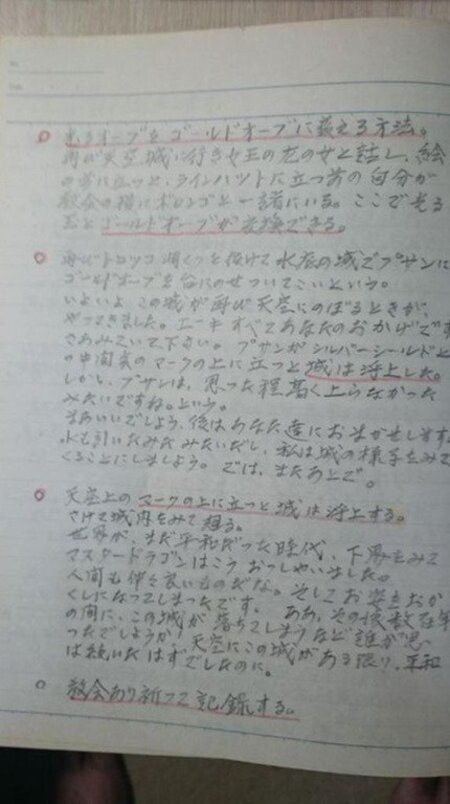 光るオーブをゴールドオーブに変える方法。
再び天空城に行き女王の左の女と話し、絵
の前に立つと、ラインハットに立つ前の自分が
教会の横にボロンゴと一緒にいる。ここで光る
玉とゴールドオーブが交換できる。
再びトロッコ洞くつを抜けて水底の城でプサンに
ゴールドオーブを台にのせついてこいという。
いよいよこの城が再び天空にのぼるときが、
やってきました。エーキすべてあなたのおかげです
さあみていて下さい。プサンがシルバーシールドと
の中間点のマークの上に立つと城は浮上した。
しかし、プサンは、思った程高く上らなかった
みたいですね。という。
まあいいでしょう、後はあなた達におまかせします。
水も引いたみたみたいだし、私は城の様子をみて
くることにしましよう。では、またあとで。
天空上のマークの上に立つと城は浮上する。
さけて城内をみて廻る。
世界が、まだ平和だった時代、下界をみて
マスタードラゴンはこうおっしゃいました。
人間も伴々良いものだな。そしてお姿をおか
くしになってしまったです。ああ、その後数百年
の間に、この城が落ちてしまうなど誰が思
ったでしょうか 天空にこの城がある限り、平和
は続いたはずでしたのに。
教会あり祈って記録する。